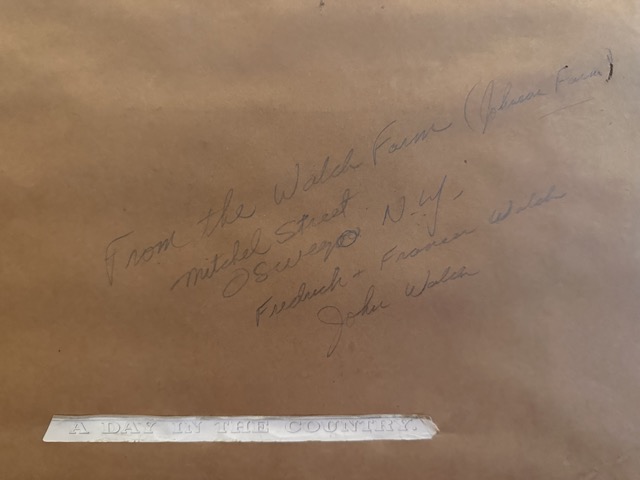 From the Walch Farm (
Mitchel Street
Oswego N.Y.
Fredrick + Frances Walch
John Walch
A DAY IN THE COUNTRY.